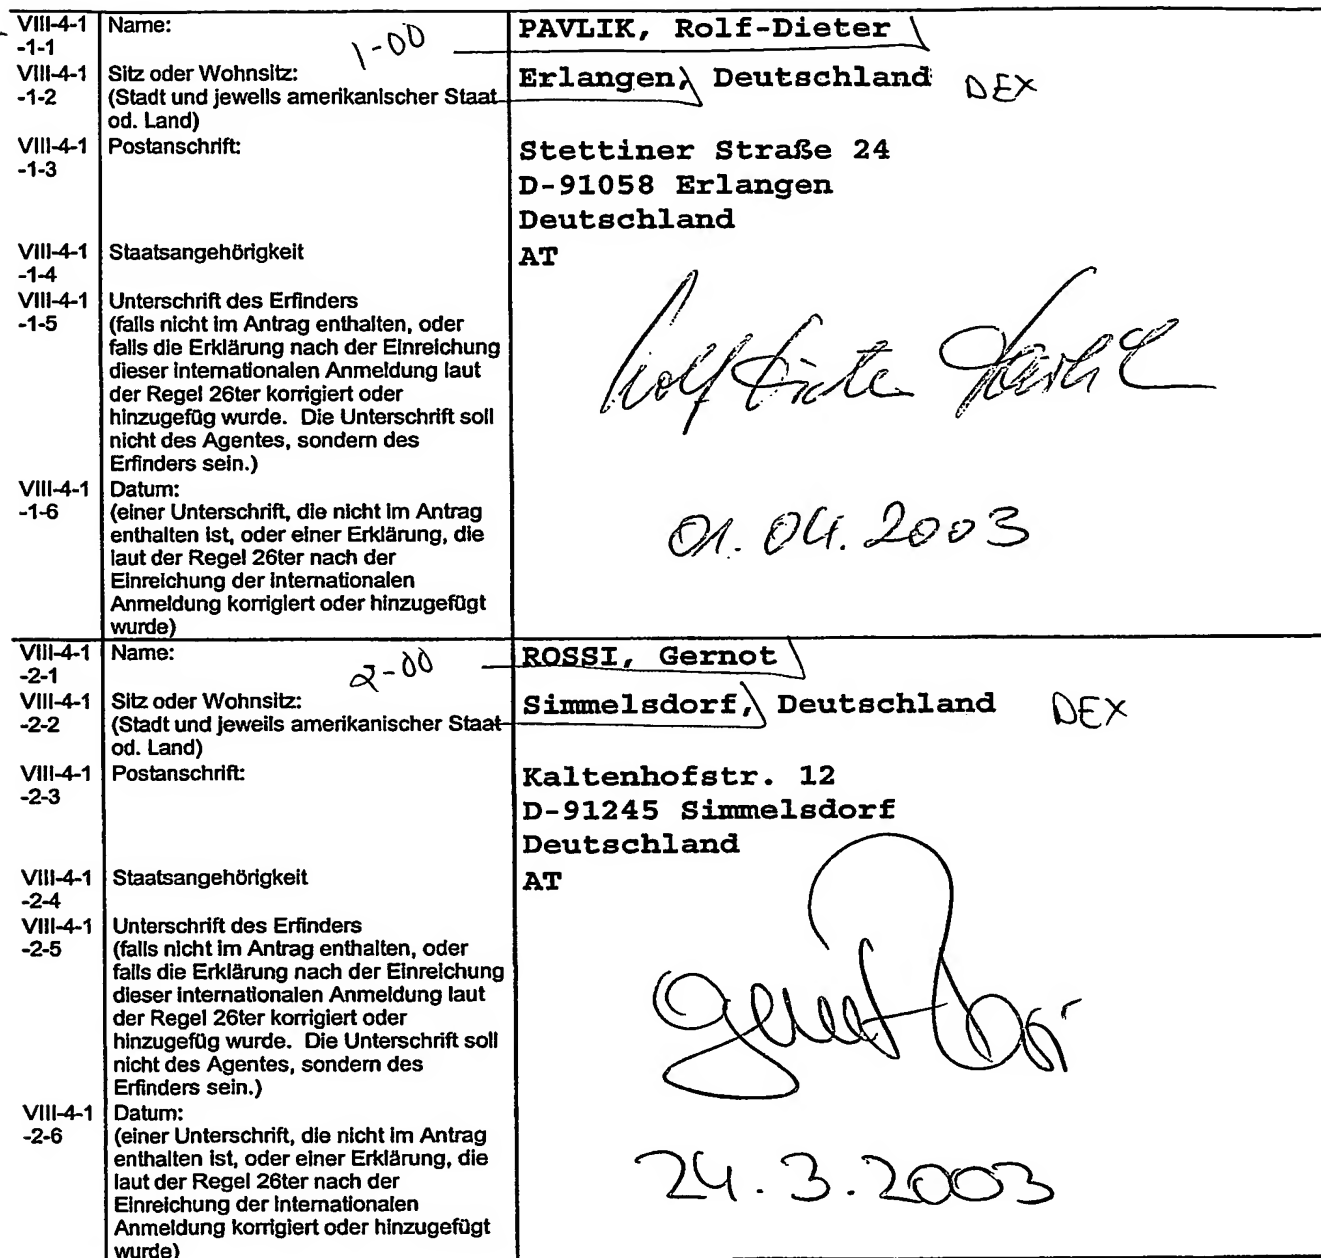 VIII-4-1 Name: 1-00 PAVLIK, Rolf-Dieter
-1-1
VIII-4-1 Sitz oder Wohnsitz: Erlangen, Deutschland DEX
-1-2 (Stadt und jeweils amerikanischer Staat
od. Land)
VIII-4-1 Postanschrift: Stettiner Straße 24
-1-3
D-91058 Erlangen
Deutschland
VIII-4-1 Staatsangehörigkeit AT
-1-4
VIII-4-1 Unterschrift des Erfinders
-1-5 (falls nicht im Antrag enthalten, oder
falls die Erklärung nach der Einreichung
dieser internationalen Anmeldung laut
der Regel 26ter korrigiert oder
hinzugefüg wurde. Die Unterschrift soll
nicht des Agentes, sondern des
Erfinders sein.)
VIII-4-1 Datum:
-1-6 (einer Unterschrift, die nicht im Antrag
enthalten ist, oder einer Erklärung, die
laut der Regel 26ter nach der 01.04.2003
Einreichung der internationalen
Anmeldung korrigiert oder hinzugefügt
wurde)
VIII-4-1 Name: 2-00 ROSSI, Gernot
-2-1
VIII-4-1 Sitz oder Wohnsitz: Simmelsdorf, Deutschland DEX
-2-2 (Stadt und jeweils amerikanischer Staat
od. Land)
VIII-4-1 Postanschrift: Kaltenhofstr. 12
-2-3
D-91245 Simmelsdorf
Deutschland
VIII-4-1 Staatsangehörigkeit AT
-2-4
VIII-4-1 Unterschrift des Erfinders
-2-5 (falls nicht im Antrag enthalten, oder
falls die Erklärung nach der Einreichung
dieser internationalen Anmeldung laut
der Regel 26ter korrigiert oder
hinzugefüg wurde. Die Unterschrift soll
nicht des Agentes, sondern des
Erfinders sein.)
VIII-4-1 Datum:
-2-6 (einer Unterschrift, die nicht im Antrag
enthalten ist, oder einer Erklärung, die
laut der Regel 26ter nach der 24.3.2003
Einreichung der internationalen
Anmeldung korrigiert oder hinzugefügt
wurde)